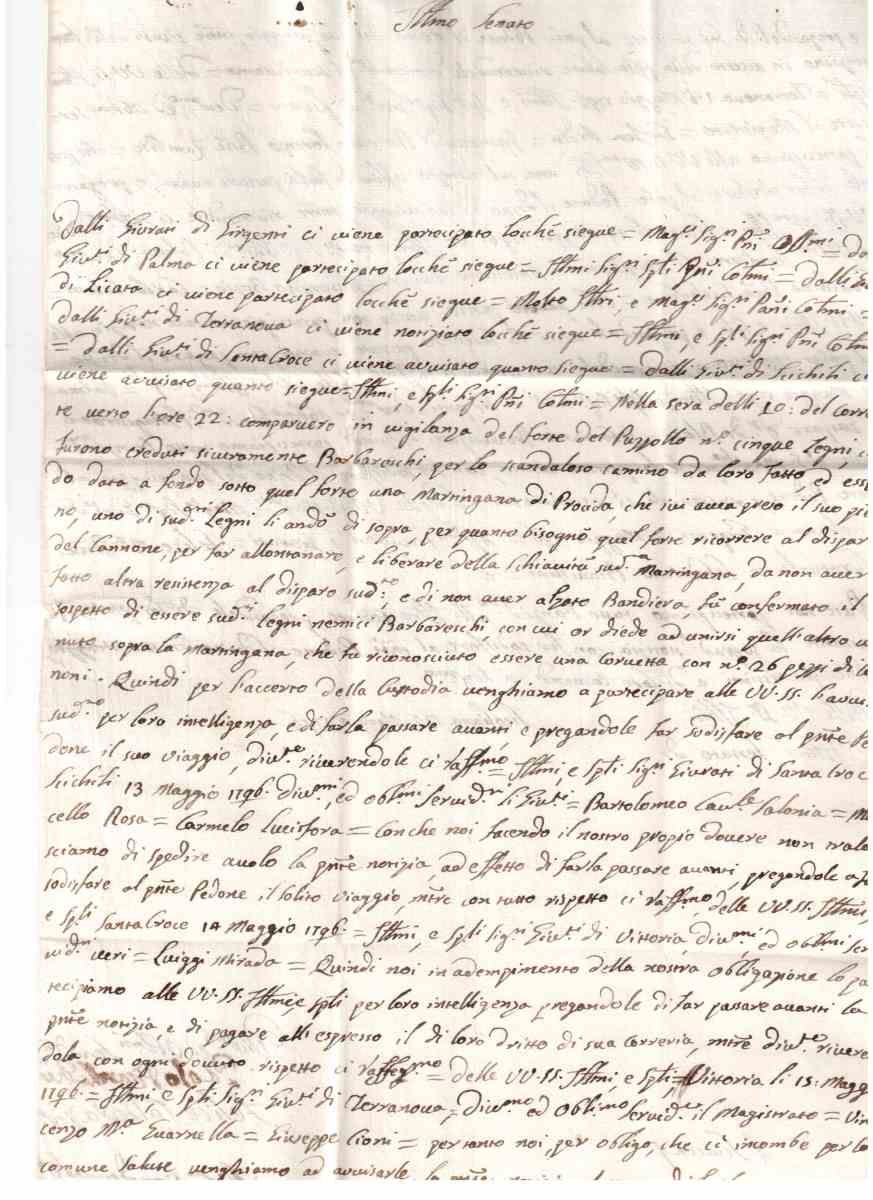 Illmo Senato
Dalli Giurati di Girgenti ci viene partecipato locchè siegue = Mag.ci Sig.ri P'ni Oss.mi = da
Giu.ti di Palma ci viene partecipato locchè siegue = Ill'mi Sig.ri Sp'li P'ni Col'mi = dalli Gi
di Licata ci viene partecipato locchè siegue = Molto Ill'ri, e Mag.ci Sig.ri P'ni Col'mi =
dalli Giu.ti di Terranova ci viene notiziato locchè siegue = Ill'mi, e Sp'li Sig.ri P'ni Col'm
= dalli Giu.ti di SantaCroce ci viene avvisato quanto siegue = dalli Giu.ti di Scichili ci
viene avvisato quanto siegue = Ill'mi, e Sp'li Sig.ri P'ni Col'mi = Nella sera delli 10: del corre
te verso l'ore 22: comparvero in vigilanza del forte del Puzzollo n.o cinque Legni, c
furono creduti sicuramente Barbareschi, per lo scandaloso camino da loro fatto, ed ess
do data a fondo sotto quel forte una Martingana di Procida, che ivi avea preso il suo
no, uno di sud.ri Legni li andò di sopra, per quanto bisognò quel forte ricorrere al dispar
del Cannone, per far allontanare, e liberare della Schiavitù sud.a Martingana, da non aver
fatto altra resistenza al disparo sud.o, e di non aver alzato Bandiera, fù confermato il
sospetto di essere sud.i Legni nemici Barbareschi, con cui or diede ad unirsi quell'altro v
nuto sopra la Martingana, che fu riconosciuto essere una Corvetta con n.o 26 pezzi di Ca
noni. Quindi per l'accerto della Custodia venghiamo a partecipare alle VV. SS. l'avvi
sud.o per loro intelligenza, e di farla passare avanti, e pregandole far sodisfare al p'nte Pe
done il suo viaggio, div.te riverendole ci raff.mo = Ill'mi, e Sp'li Sig.ri Giurati di Santa Croc
Scichili 13 Maggio 1796. div.mi, ed obl.mi Servid.ri li Giu.ti = Bartolomeo Cav.le Salonia = M
cello Rosa = Carmelo Lucifora = Con che noi facendo il nostro propio dovere non trala
sciamo di spedire a volo la p'nte notizia, ad effetto di farla passare avanti, pregandole a fa
sodisfare al p'nte Pedone il solito viaggio, m'tre con tutto rispetto ci raff.mo, delle VV. SS. Ill'mi,
e Sp'li SantaCroce 14 Maggio 1796. = Ill'mi, e Sp'li Sig.ri Giu.ti di Vittoria, div.mi, ed obl'mi Ser
vid.ri veri = Luiggi Mirada = Quindi noi in adempimento della nostra obligazione lo pa
tecipiamo alle VV. SS. Ill'mi, e Sp'li per loro intelligenza pregandole di far passare avanti la
p'nte notizia, e di pagare all'espresso il di loro dritto di sua correria, m'tre div.te rivere
dola con ogni dovuto rispetto ci raffeg.mo = delle VV. SS. Ill'mi, e Sp'li = Vittoria li 15: Magg
1796. = Ill'mi, e Sp'li Sig.ri Giu.ti di Terranova = Div.mo ed Obli.mo Servid.re il Magistrato = Vin
cenzo M.a Guarnella = Giuseppe Cioni = per tanto noi, per obligo, che ci incombe per la
comune Salute venghiamo ad avvisarle la p'nte